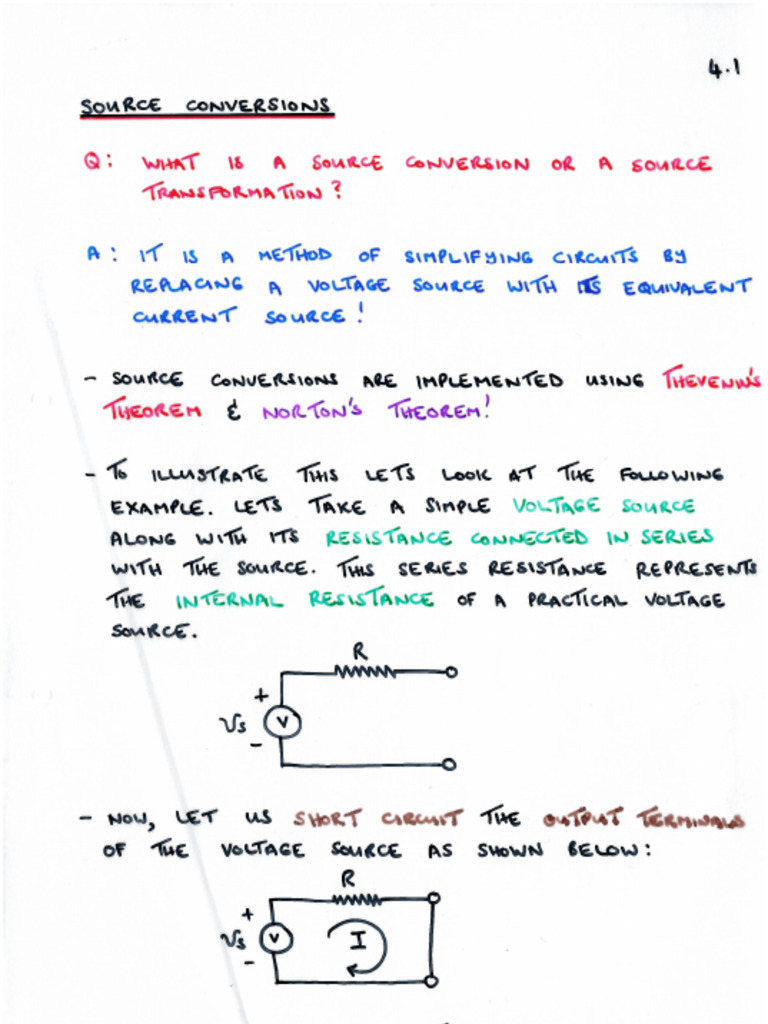 4.1
SOURCE CONVERSIONS
Q: WHAT IS A SOURCE CONVERSION OR A SOURCE
TRANSFORMATION?
A: IT IS A METHOD OF SIMPLIFYING CIRCUITS BY
REPLACING A VOLTAGE SOURCE WITH ITS EQUIVALENT
CURRENT SOURCE!
- SOURCE CONVERSIONS ARE IMPLEMENTED USING THEVENIN'S
THEOREM & NORTON'S THEOREM!
- TO ILLUSTRATE THIS LETS LOOK AT THE FOLLOWING
EXAMPLE. LETS TAKE A SIMPLE VOLTAGE SOURCE
ALONG WITH ITS RESISTANCE CONNECTED IN SERIES
WITH THE SOURCE. THIS SERIES RESISTANCE REPRESENTS
THE INTERNAL RESISTANCE OF A PRACTICAL VOLTAGE
SOURCE.
R
+
Vs V
-
- NOW, LET US SHORT CIRCUIT THE OUTPUT TERMINALS
OF THE VOLTAGE SOURCE AS SHOWN BELOW:
R
+
Vs V I
-